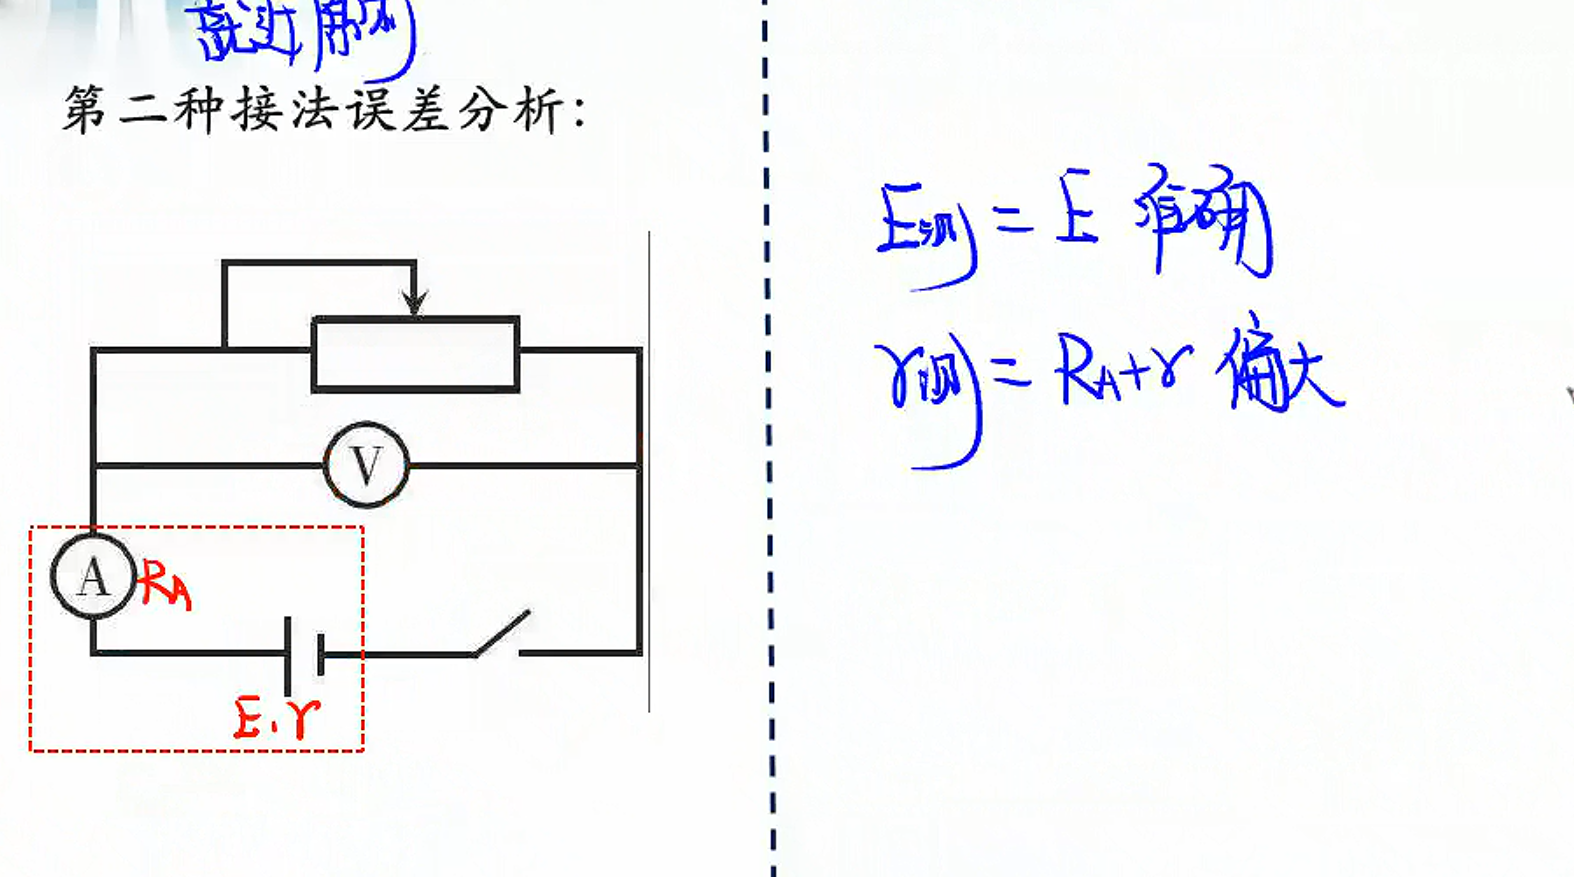 第二种接法误差分析：
V
A
R_A
E.r
E测 = E 准确
r测 = R_A+r 偏大